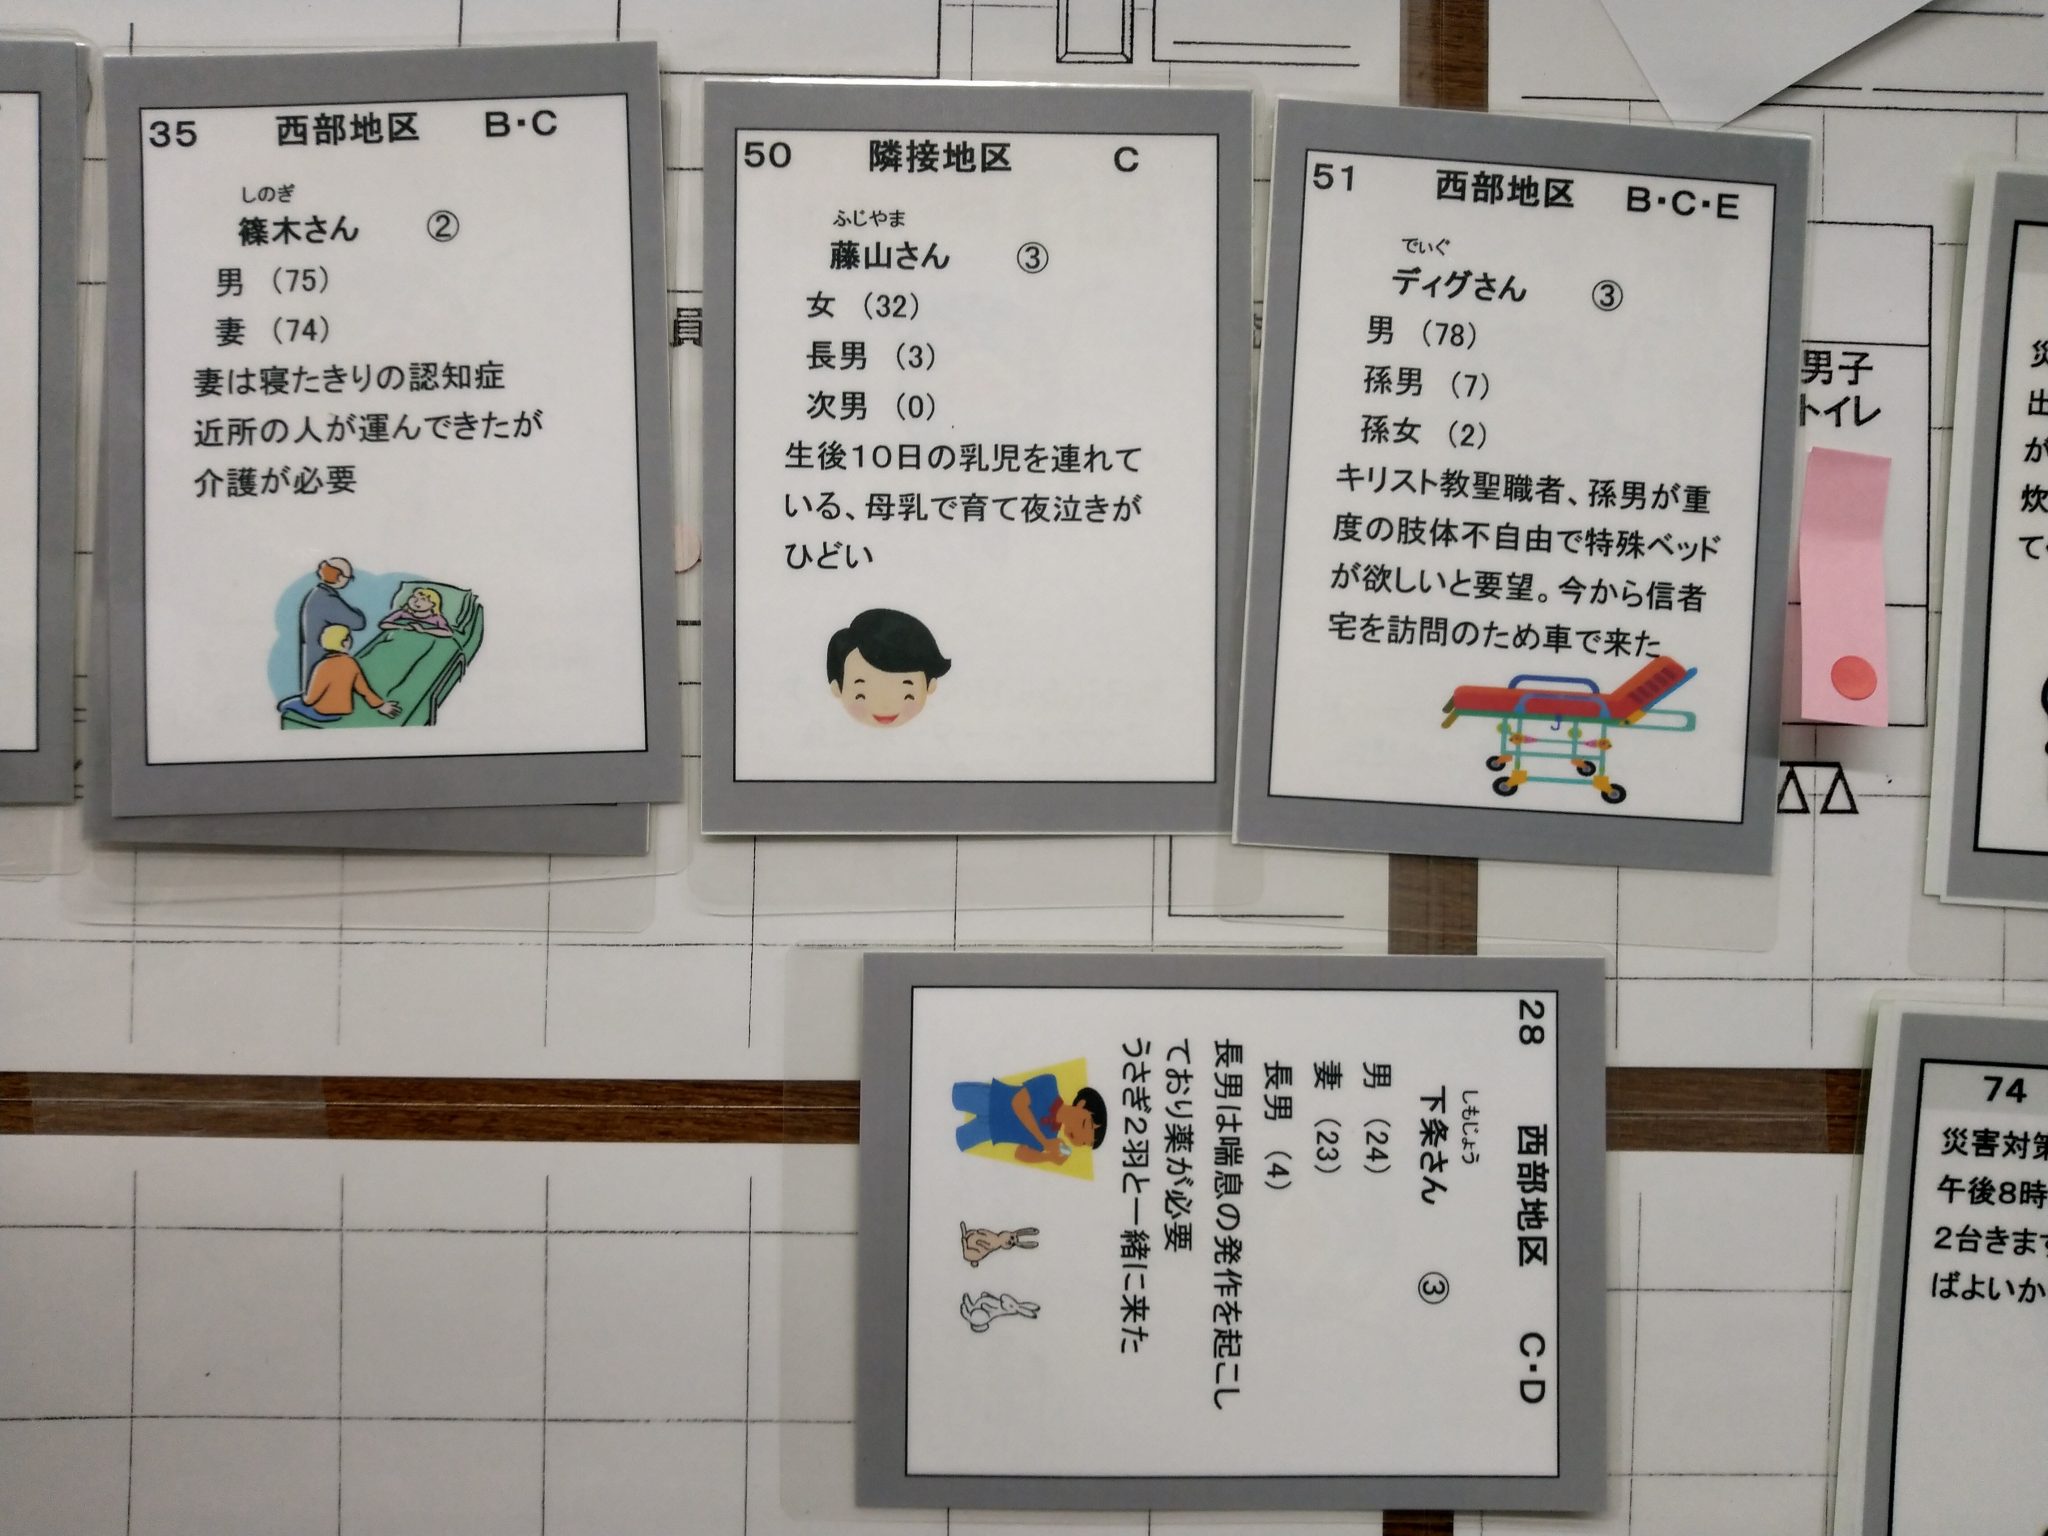 35 西部地区 B・C
しのぎ
篠木さん ②
男 （75）
妻 （74）
妻は寝たきりの認知症
近所の人が運んできたが
介護が必要
50 隣接地区 C
ふじやま
藤山さん ③
女 （32）
長男 （3）
次男 （0）
生後10日の乳児を連れて
いる、母乳で育て夜泣きが
ひどい
51 西部地区 B・C・E
でぃぐ
ディグさん ③
男 （78）
孫男 （7）
孫女 （2）
キリスト教聖職者、孫男が重
度の肢体不自由で特殊ベッド
が欲しいと要望。今から信者
宅を訪問のため車で来た
員
男子
トイレ
災
出
が
炊
て
28 西部地区 C・D
しもじょう
下条さん ③
男 （24）
妻 （23）
長男 （4）
長男は喘息の発作を起こし
ており薬が必要
うさぎ2羽と一緒に来た
74
災害対策
午後8時
2台きます
ばよいか